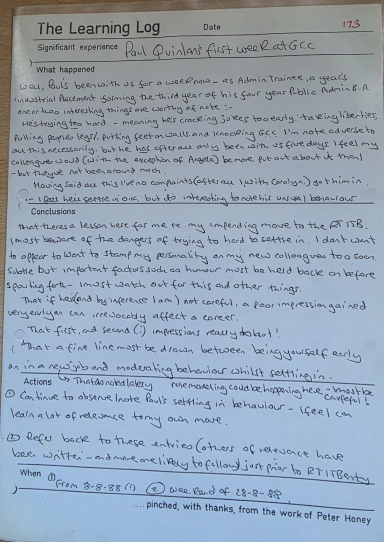 The Learning Log
Date
173
Significant experience Paul Quinlan's first week at GCC
What happened
Well, Paul's been with us for a week now - as Admin Trainee, a year's
industrial Placement forming the third year of his four year Public Admin B.A.
one or two interesting things are worthy of note :-
He's trying too hard - meaning he's cracking jokes too early, taking liberties,
pulling peoples legs, putting feet on walls and knocking GCC. I'm not adverse to
all this necessarily, but he has after all only been with us five days. I feel my
colleagues would (with the exception of Angela) be more put out about it than I
- but they've not been around much.
Having said all this I've no complaints (after all I with Carolyn) got him in.
I feel he'll settle in O.K. but its interesting to note his unusual behaviour
Conclusions
That theres a lesson here for me re. my impending move to the RTITB.
I must beware of the dangers of trying to hard to settle in. I don't want
to appear to want to stamp my personality on my new colleagues too soon.
Subtle but important factors such as humour must be held back on before
spouting forth - I must watch out for this and other things.
That if he (and by inference I am) not careful, a poor impression gained
very early on can irrevocably affect a career.
That first, and second (!) impressions really do count!
That a fine line must be drawn between being yourself early
on in a new job and moderating behaviour whilst settling in.
Actions
role modelling could be happening here - I must be
careful!
① Continue to observe/note Paul's settling in behaviour - I feel I can
learn a lot of relevance to my own move.
② Refer back to these entries (others of relevance have
been written - and more are likely to follow) just prior to RTITB entry
When ① From 8-8-88 (!) ② week end of 28-8-88
....pinched, with thanks, from the work of Peter Honey